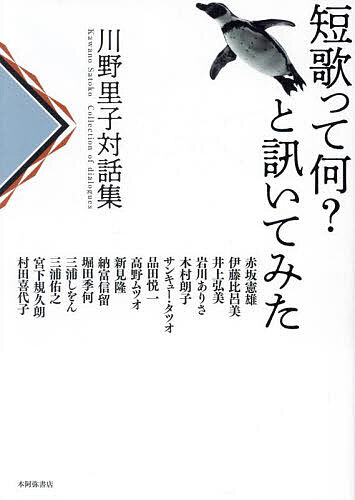 短歌って何?
と訊いてみた
川野里子対話集
Kawano Satoko Collection of dialogues
赤坂憲雄
伊藤比呂美
井上弘美
岩川ありさ
木村朗子
サンキュータツオ
品田悦一
高野ムツオ
新見隆
納富信留
堀田季何
三浦しをん
三浦佑之
宮下規久朗
村田喜代子
本阿弥書店